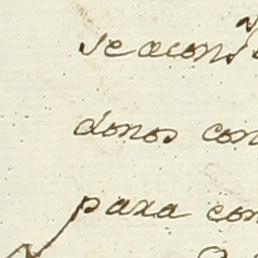 se acons
donos con
para con